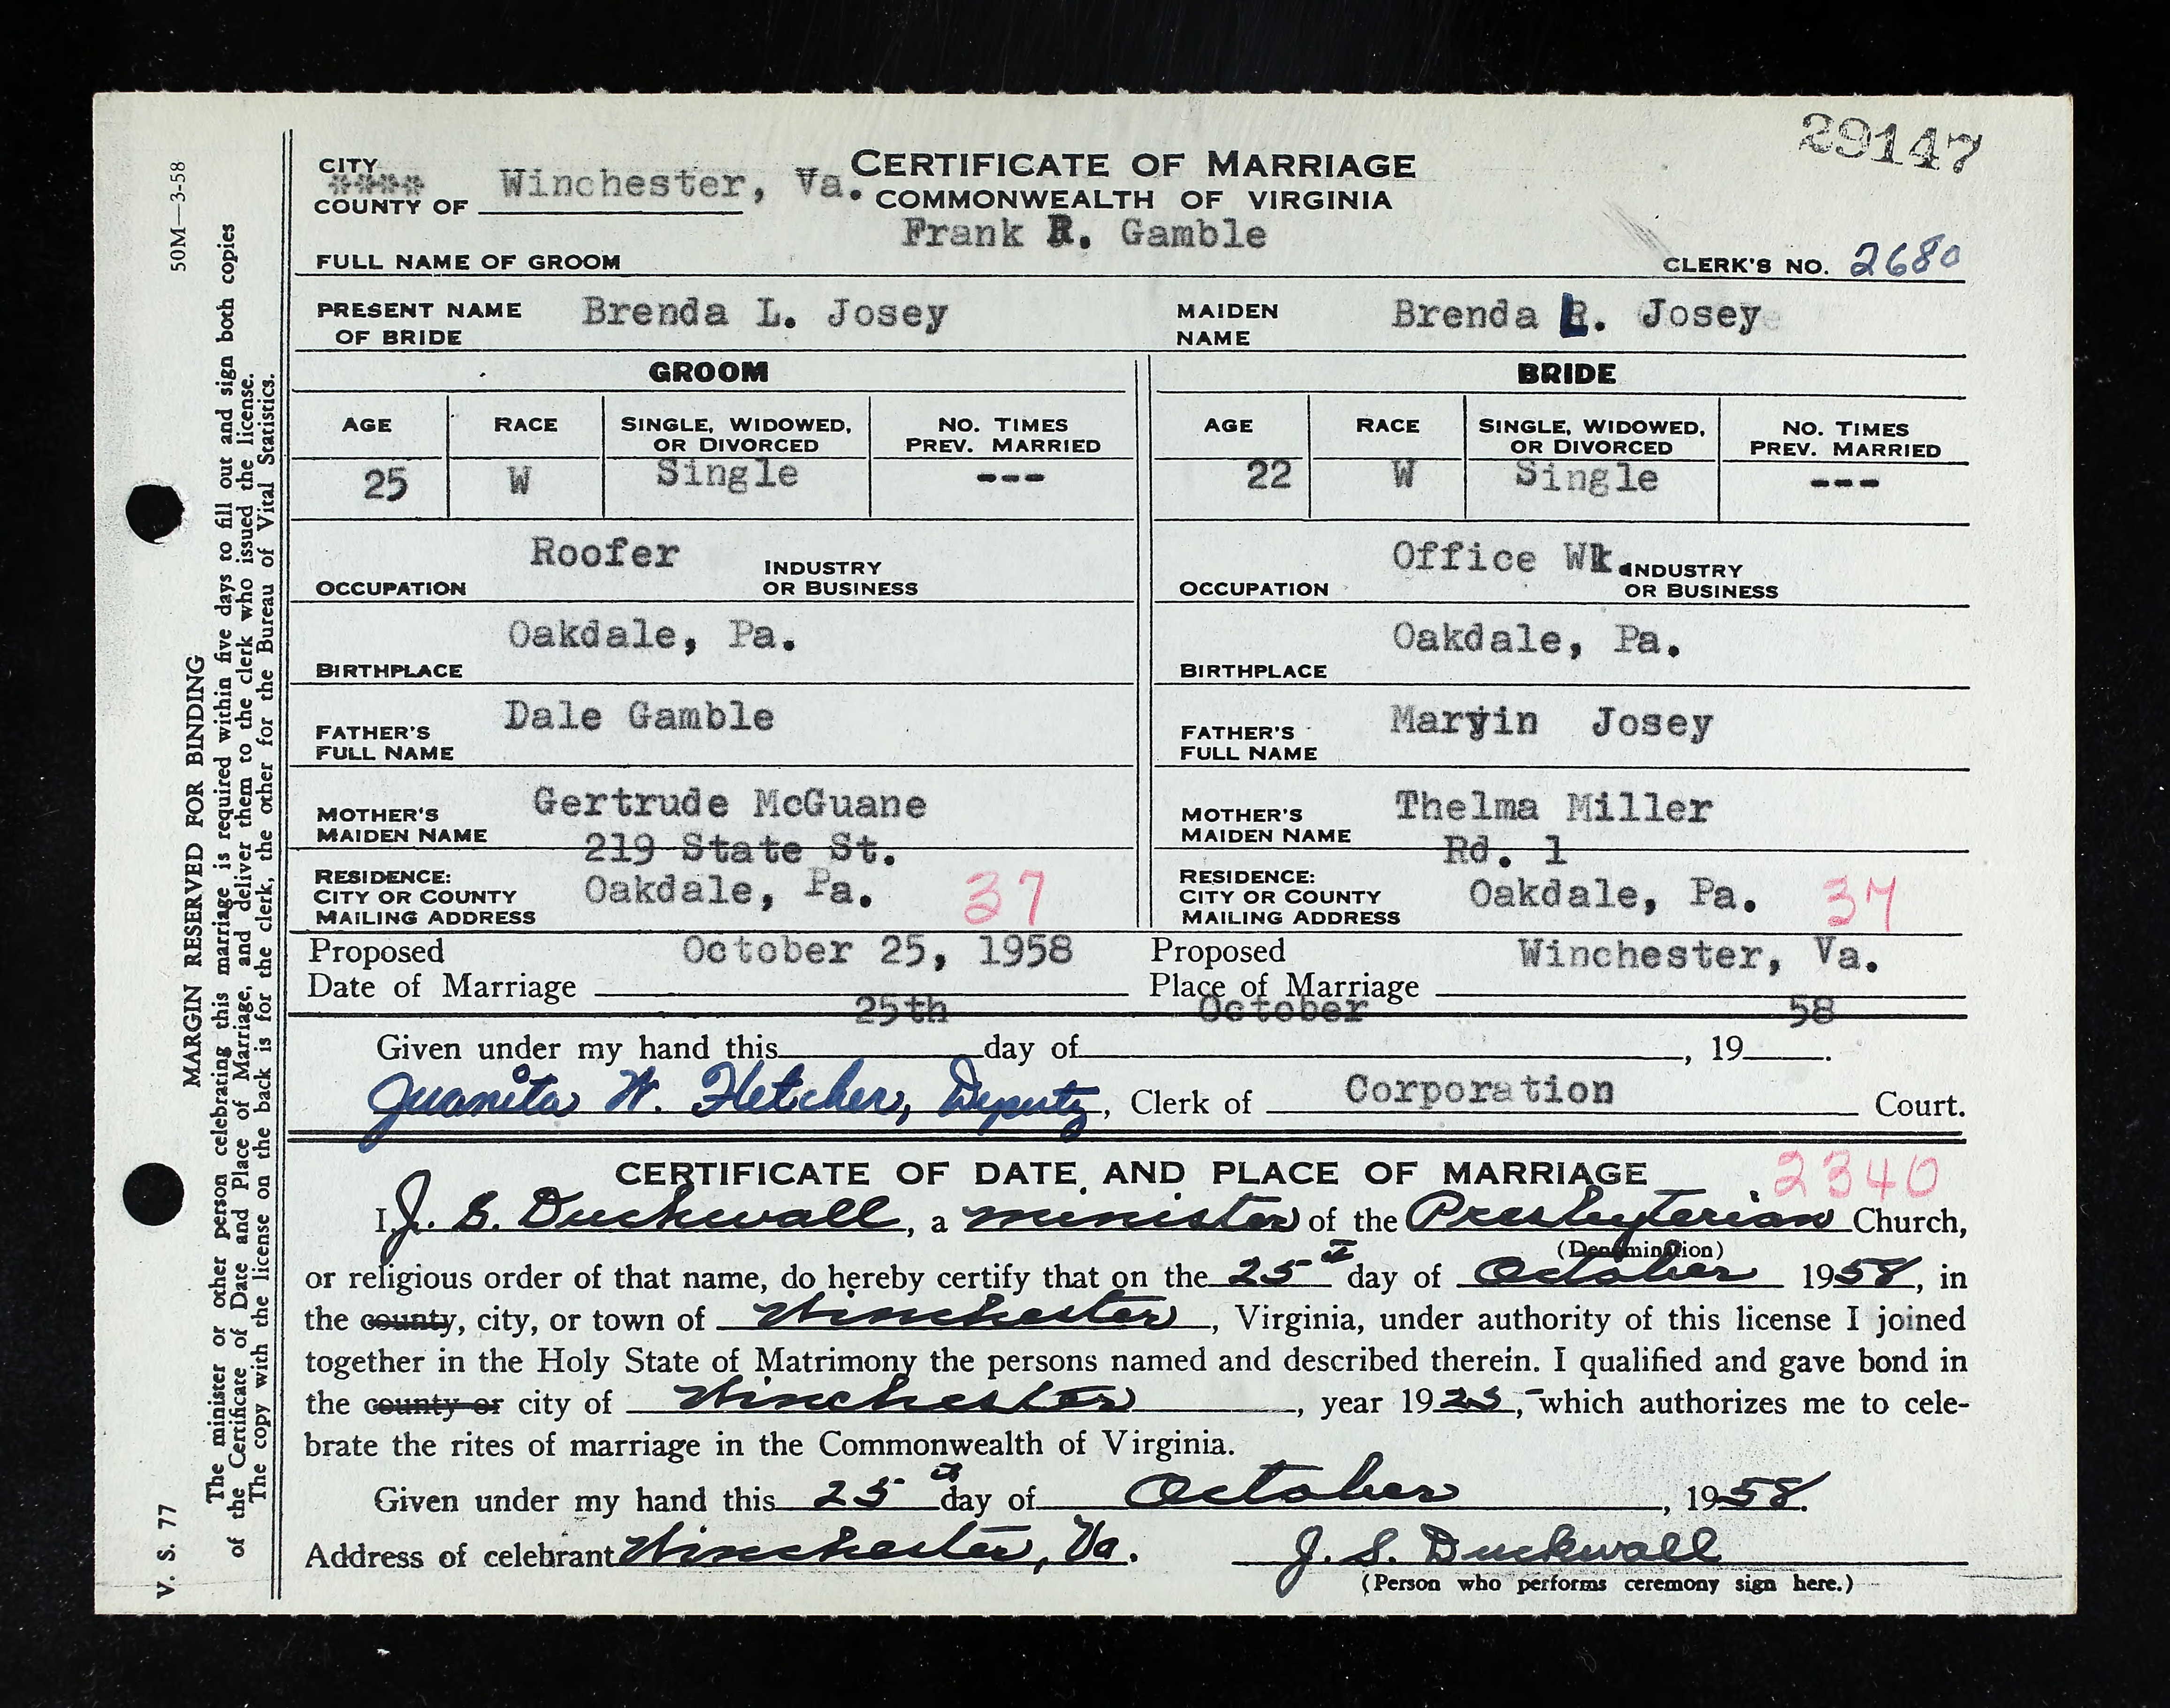 29147
CITY
COUNTY OF Winchester, Va.
CERTIFICATE OF MARRIAGE
COMMONWEALTH OF VIRGINIA
FULL NAME OF GROOM Frank R. Gamble
CLERK'S NO. 2680
PRESENT NAME OF BRIDE Brenda L. Josey
MAIDEN NAME Brenda L. Josey
GROOM
AGE RACE SINGLE, WIDOWED, OR DIVORCED NO. TIMES PREV. MARRIED
25 W Single ---
OCCUPATION Roofer INDUSTRY OR BUSINESS
BIRTHPLACE Oakdale, Pa.
FATHER'S FULL NAME Dale Gamble
MOTHER'S MAIDEN NAME Gertrude McGuane
219 State St.
RESIDENCE: CITY OR COUNTY MAILING ADDRESS Oakdale, Pa. 37
BRIDE
AGE RACE SINGLE, WIDOWED, OR DIVORCED NO. TIMES PREV. MARRIED
22 W Single ---
OCCUPATION Office Wk. INDUSTRY OR BUSINESS
BIRTHPLACE Oakdale, Pa.
FATHER'S FULL NAME Josey
MOTHER'S MAIDEN NAME Thelma Miller
Rd. 1
RESIDENCE: CITY OR COUNTY MAILING ADDRESS Oakdale, Pa. 37
Proposed Date of Marriage October 25, 1958
Proposed Place of Marriage Winchester, Va.
Given under my hand this 25th day of October, 1958.
Juanita W. Fletcher, Deputy, Clerk of Corporation Court.
CERTIFICATE OF DATE AND PLACE OF MARRIAGE 2340
I, J. S. Duckwall, a minister of the Presbyterian Church,
(Denomination)
or religious order of that name, do hereby certify that on the 25th day of October 1958, in
the county, city, or town of Winchester, Virginia, under authority of this license I joined
together in the Holy State of Matrimony the persons named and described therein. I qualified and gave bond in
the county or city of Winchester, year 1925, which authorizes me to cele-
brate the rites of marriage in the Commonwealth of Virginia.
Given under my hand this 25th day of October, 1958.
Address of celebrant Winchester, Va. J. S. Duckwall
(Person who performs ceremony sign here.)
50M—3-58
MARGIN RESERVED FOR BINDING
V. S. 77
The minister or other person celebrating this marriage is required within five days to fill out and sign both copies
of the Certificate of Date and Place of Marriage, and deliver them to the clerk who issued the license.
The copy with the license on the back is for the clerk, the other for the Bureau of Vital Statistics.